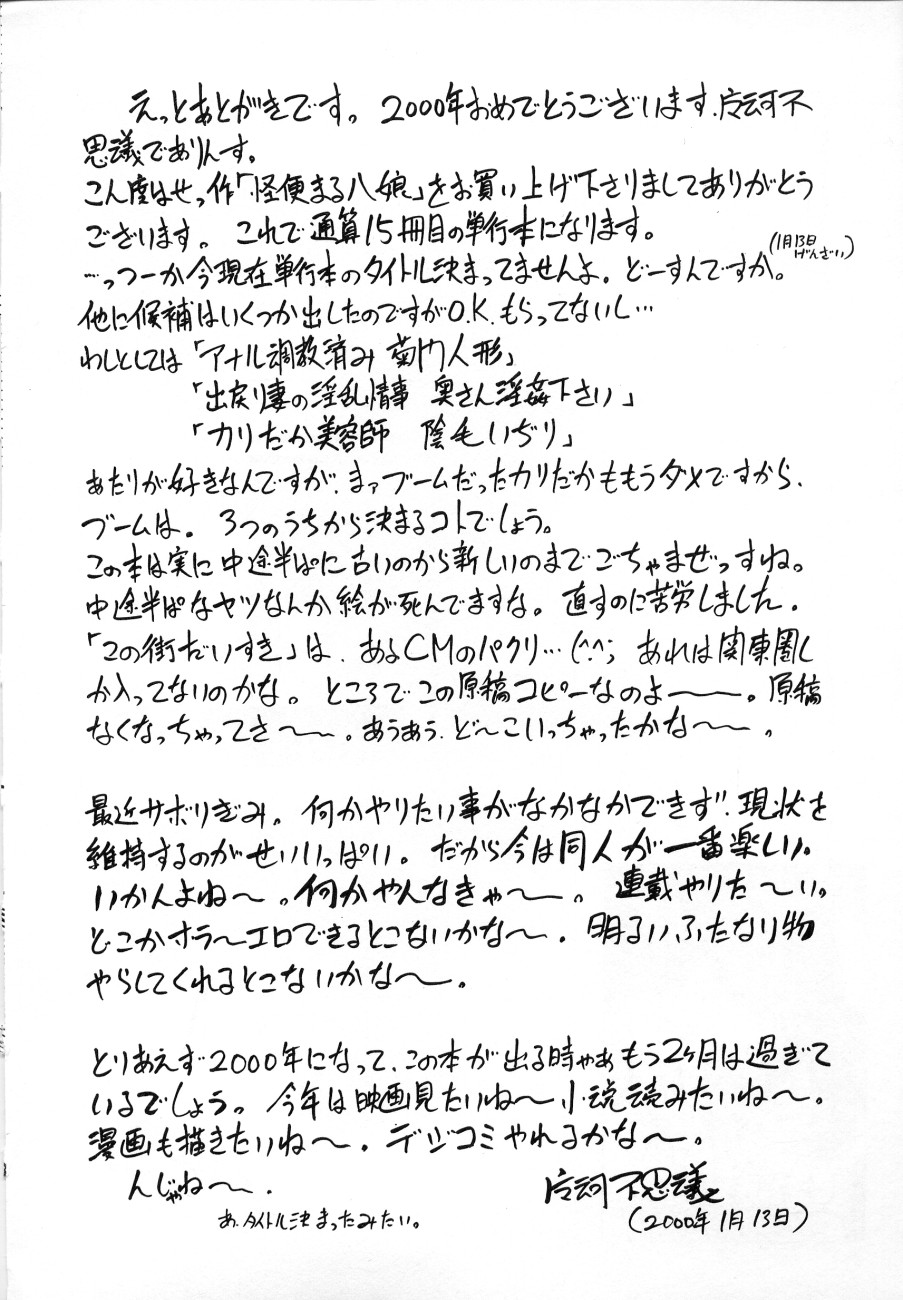 えっとあとがきです。2000年おめでとうございます.
思議でありんす。
こん度はせっ作「怪便まる八娘」をお買い上げ下さりましてありがとう
ございます。これで通算15冊目の単行本になります。
…っつーか今現在単行本のタイトル決まってませんよ。どーすんですか。(1月13日げんざい)
他に候補はいくつか出したのですがO.K.もらってないし…
わしとしては「アナル調教済み 菊門人形」
「出戻り妻の淫乱情事 奥さん淫姦下さい」
「カリだか美容師 陰毛いぢり」
あたりが好きなんですが、まァブームだったカリだかももうダメですから、
ブームは。3つのうちから決まるコトでしょう。
この本は実に中途半ぱに古いのから新しいのまでごちゃまぜっすね。
中途半ぱなヤツなんか絵が死んでますな。直すのに苦労しました。
「この街だいすき」は、あるCMのパクリ…(^.^; あれは関東圏し
か入ってないのかな。ところでこの原稿コピーなのよ――。原稿
なくなっちゃってさ〜―。あうあう、ど〜こいっちゃったかな〜〜。
最近サボりぎみ。何かやりたい事がなかなかできず、現状を
維持するのがせいいっぱい。だから今は同人が一番楽しい。
いかんよね〜。何かやんなきゃ〜。連載やりた〜い。
どこかホラ〜エロできるとこないかな〜。明るいふたなり物
やらしてくれるとこないかな〜。
とりあえず2000年になって、この本が出る時ゃあもう2ヶ月は過ぎて
いるでしょう。今年は映画見たいね〜小説読みたいね〜。
漫画も描きたいね〜。デジコミやれるかな〜。
んじゃね〜.
不思議
あ、タイトル決まったみたい。
(2000年1月13日)